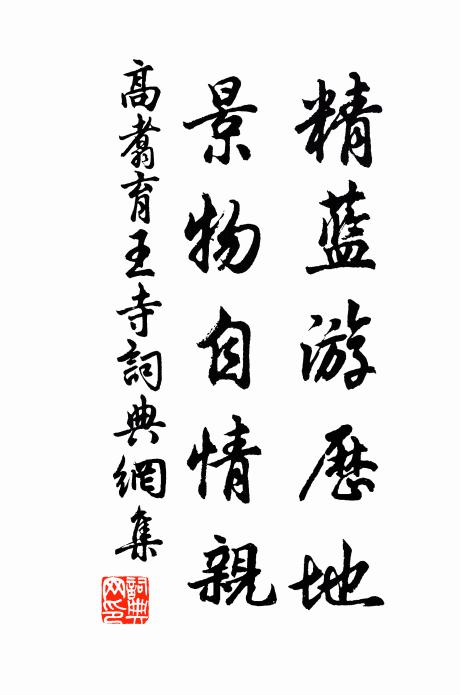 精藍游歷地
景物自情親
高翥育王寺詞典網集
詞典網印